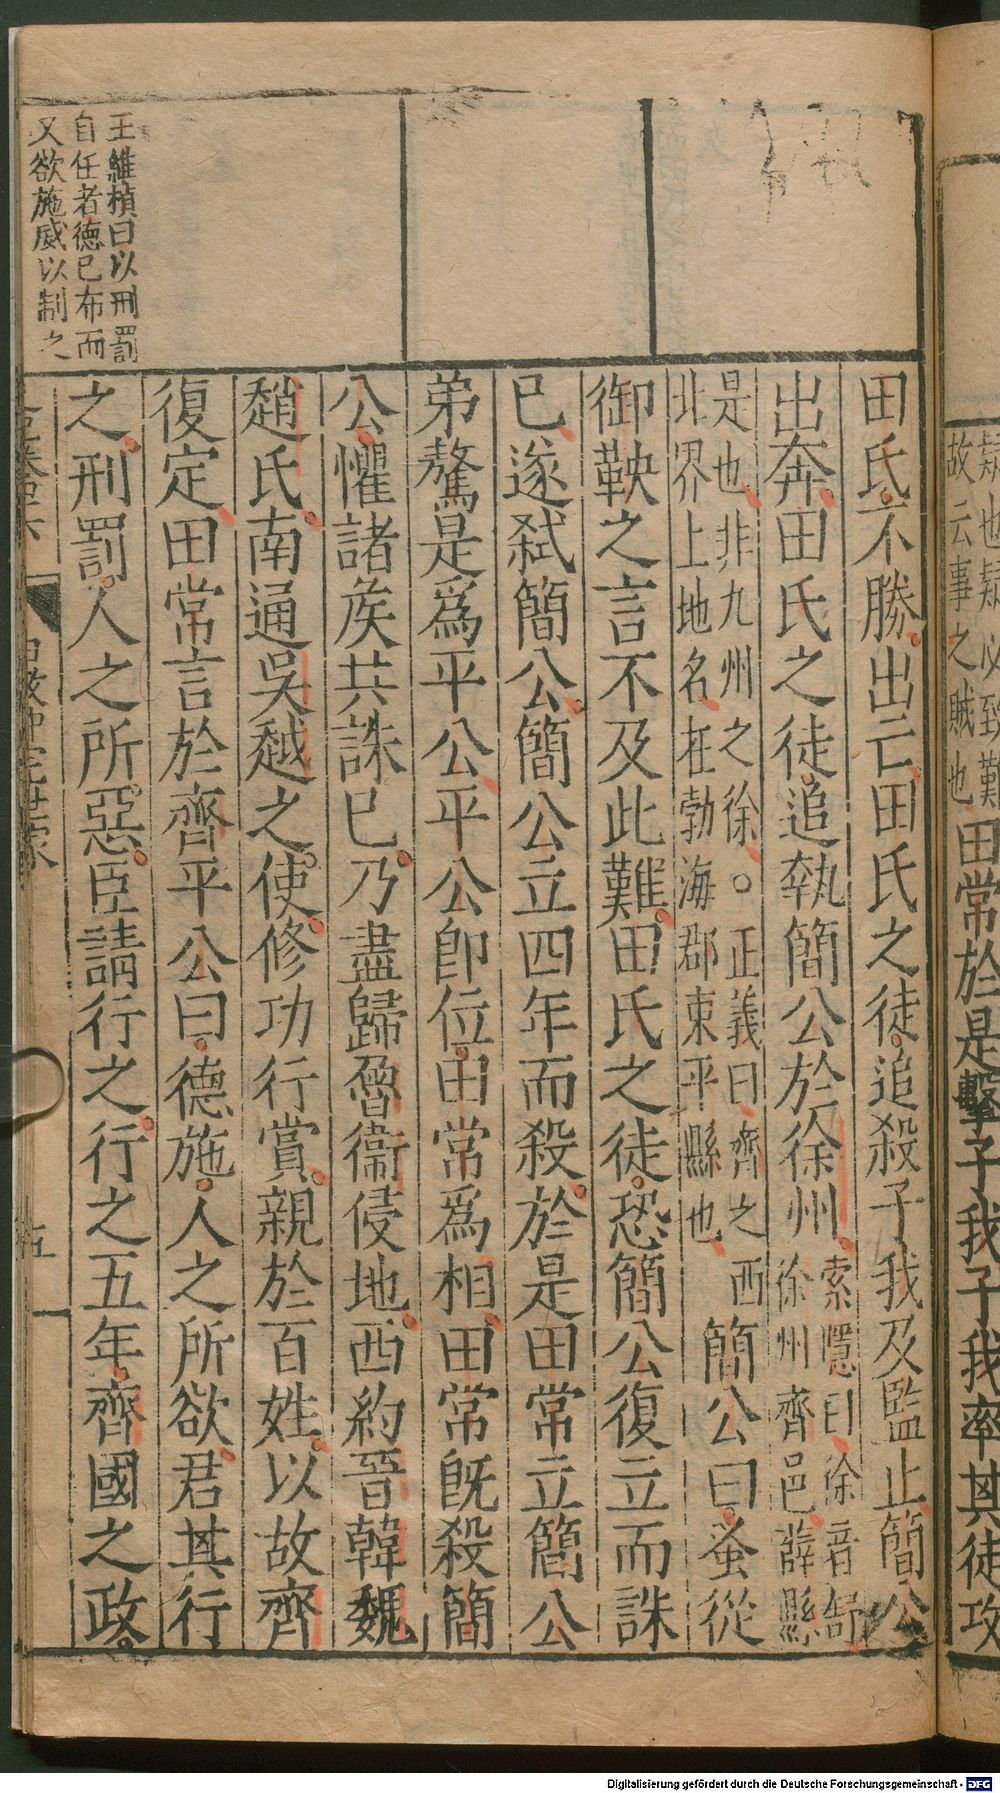 疑也疑必致難
故云事之賊也
田常於是擊子我子我率其徒攻
田氏不勝出亡田氏之徒追殺子我及監止簡公
出奔田氏之徒追執簡公於徐州
索隱曰徐音舒
徐州齊邑薛縣
是也非九州之徐○正義曰齊之西
北界上地名在勃海郡東平縣也
簡公曰蚤從
御鞅之言不及此難田氏之徒恐簡公復立而誅
已遂弑簡公簡公立四年而殺於是田常立簡公
弟驁是爲平公平公卽位田常爲相田常旣殺簡
公懼諸矦共誅已乃盡歸魯衞侵地西約晉韓魏
趙氏南通吳越之使修功行賞親於百姓以故齊
復定田常言於齊平公曰德施人之所欲君其行
之刑罰人之所惡臣請行之行之五年齊國之政
王維楨曰以刑罰
自任者德已布而
又欲施威以制之
田敬仲完世家
五
Digitalisierung gefördert durch die Deutsche Forschungsgemeinschaft - DFG